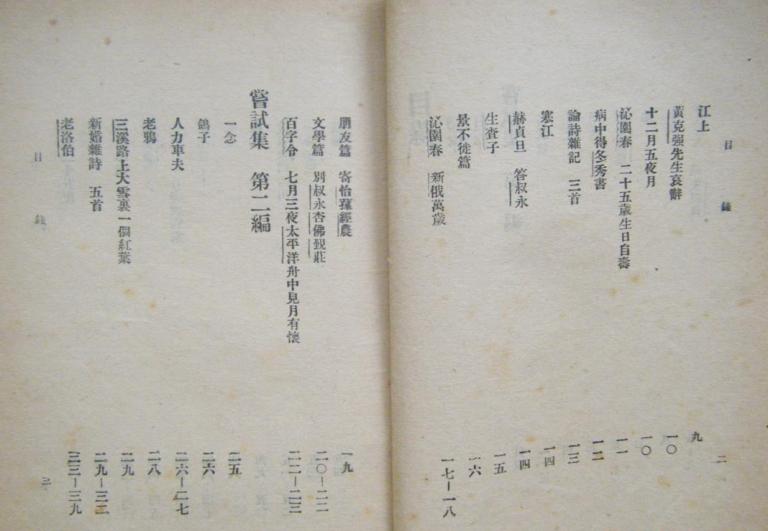 目錄 二
江上 九
黃克强先生哀辭 一〇
十二月五夜月 一〇
沁園春 二十五歲生日自壽 一一
病中得冬秀書 一二
論詩雜記 三首 一三
寒江 一四
赫貞旦 答叔永 一四
生查子 一五
景不徙篇 一六
沁園春 新俄萬歲 一七－一八
朋友篇 寄怡蓀經農 一九
文學篇 別叔永杏佛覲莊 二〇－二一
百字令 七月三夜太平洋舟中見月有懷 二二－二三
嘗試集 第二編
一念 二五
鴿子 二六
人力車夫 二六－二七
老鴉 二八
三溪路上大雪裏一個紅葉 二九
新婚雜詩 五首 二九－三二
老洛伯 三三－三九
目錄 三